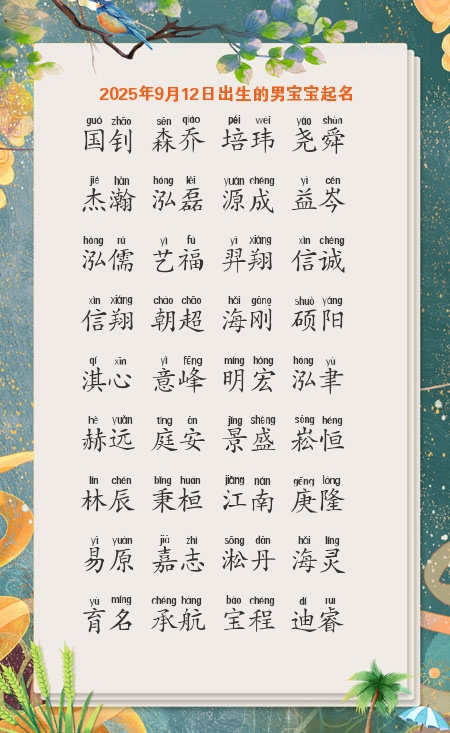 2025年9月12日出生的男宝宝起名
guó zhāo sēn qiáo péi wěi yáo shùn
国钊 森乔 培玮 尧舜
jié hàn hóng lěi yuán chéng yì cén
杰瀚 泓磊 源成 益岑
hóng rú yì fú yì xiáng xìn chéng
泓儒 艺福 羿翔 信诚
xìn xiáng cháo chāo hǎi gāng shuò yáng
信翔 朝超 海刚 硕阳
qí xīn yì fēng míng hóng hóng yù
淇心 意峰 明宏 泓聿
hè yuǎn tíng ān jǐng shèng sōng héng
赫远 庭安 景盛 崧恒
lín chén bǐng huán jiāng nán gēng lóng
林辰 秉桓 江南 庚隆
yì yuán jiā zhì sōng dān hǎi líng
易原 嘉志 淞丹 海灵
yù míng chéng háng bǎo chéng dí ruì
育名 承航 宝程 迪睿